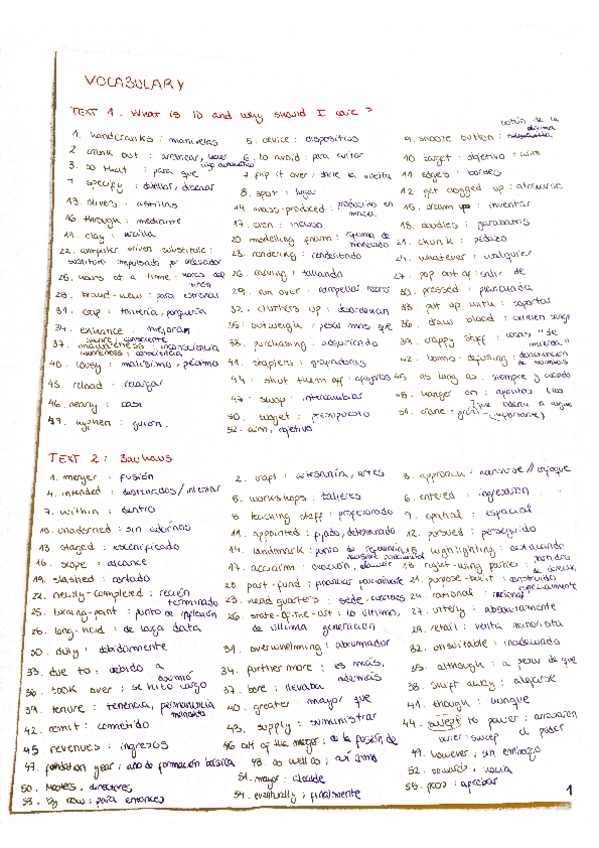 VOCABULARY
TEXT 1. What is ID and why should I care?
1. handcranks: manivelas
5. device: dispositivo
9. snooze button: botón de la alarma
2. crank out: arrancar,
6. to avoid: para evitar
10. target: objetivo
3. so that: para que
7. flip it over: darle la vuelta
11. edges: bordes
4. specify: detallar, diseñar
8. spot: lugar
12. get clogged up: atascarse
13. slivers: astillas
14. mass-produced: producción en
15. dream up: inventar
16. through: mediante
17. even: incluso
18. doodles: garabatos
19. clay: arcilla
20. modelling foam: espuma de modelado
21. chunk: pedazo
22. computer driven substitute: sustituto impulsado por ordenador
23. rendering:
24. whatever: cualquier
25. hours at a time: horas
26. carving: tallando
27. pop out of: salir de
28. brand-new: para estrenar
29. run over: atropellar
30. pressed: presionada
31. crap: tontería, porquería
32. clutters up: desordenan
33. put up with: soportar
34. enhance: mejorar
35. outweigh: pesar más que
36. draw blood:
37. unawareness: inconsciencia
awareness: consciencia
38. purchasing: adquiriendo
39. crappy stuff: cosas "de mierda"
40. lousy: malísimo, pésimo
41. staplers: grapadoras
42. bomb-defusing: desactivación de bombas
43. reload: recargar
44. shut them off: apagarlos
45. as long as: siempre y cuando
46. nearly: casi
47. swap: intercambiar
48. hanger on:
49. hyphen: guion.
50. budget: presupuesto
51. crane: grúa
52. aim, objetivo
TEXT 2: Bauhaus
1. merger: fusión
2. craft: artesanía, artes
3. approach: acercarse // enfoque
4. intended: destinados / intentar
5. workshops: talleres
6. entered: ingresaron
7. within: dentro
8. teaching staff: profesorado
9. spatial: espacial
10. unadorned: sin adornos
11. appointed: fijado, determinado
12. pursued: perseguido
13. staged: escenificado
14. landmark: punto de referencia,
15. highlighting: destacando
16. scope: alcance
17. acclaim: ovación,
18. right-wing parties: partidos de derecha
19. slashed: cortado
20. part-fund: financiar parcialmente
21. purpose-built: construido especialmente
22. newly-completed: recién terminado
23. headquarters: sede,
24. rational: racional
25. turning-point: punto de inflexión
26. state-of-the-art: lo último, de última generación
27. utterly: absolutamente
28. long-held: de larga data
29. retail: venta minorista
30. duly: debidamente
31. overwhelming: abrumador
32. unsuitable: inadecuado
33. due to: debido a
34. furthermore: es más, además
35. although: a pesar de que
36. took over: asumió
se hizo cargo
37. bore: llevaba
38. shift away: alejarse
39. tenure: tenencia, permanencia
40. greater: mayor que
41. though: aunque
42. remit: cometido
43. supply: suministrar
44. swept to power: arrasaron
el poder
45. revenues: ingresos
46. out of the merger: de la fusión de
47. foundation year: año de formación básica
48. as well as: así como
49. however: sin embargo
50. directores
51. mayor: alcalde
52. towards: hacia
53. by now: para entonces
54. eventually: finalmente
55. pass: aprobar
1